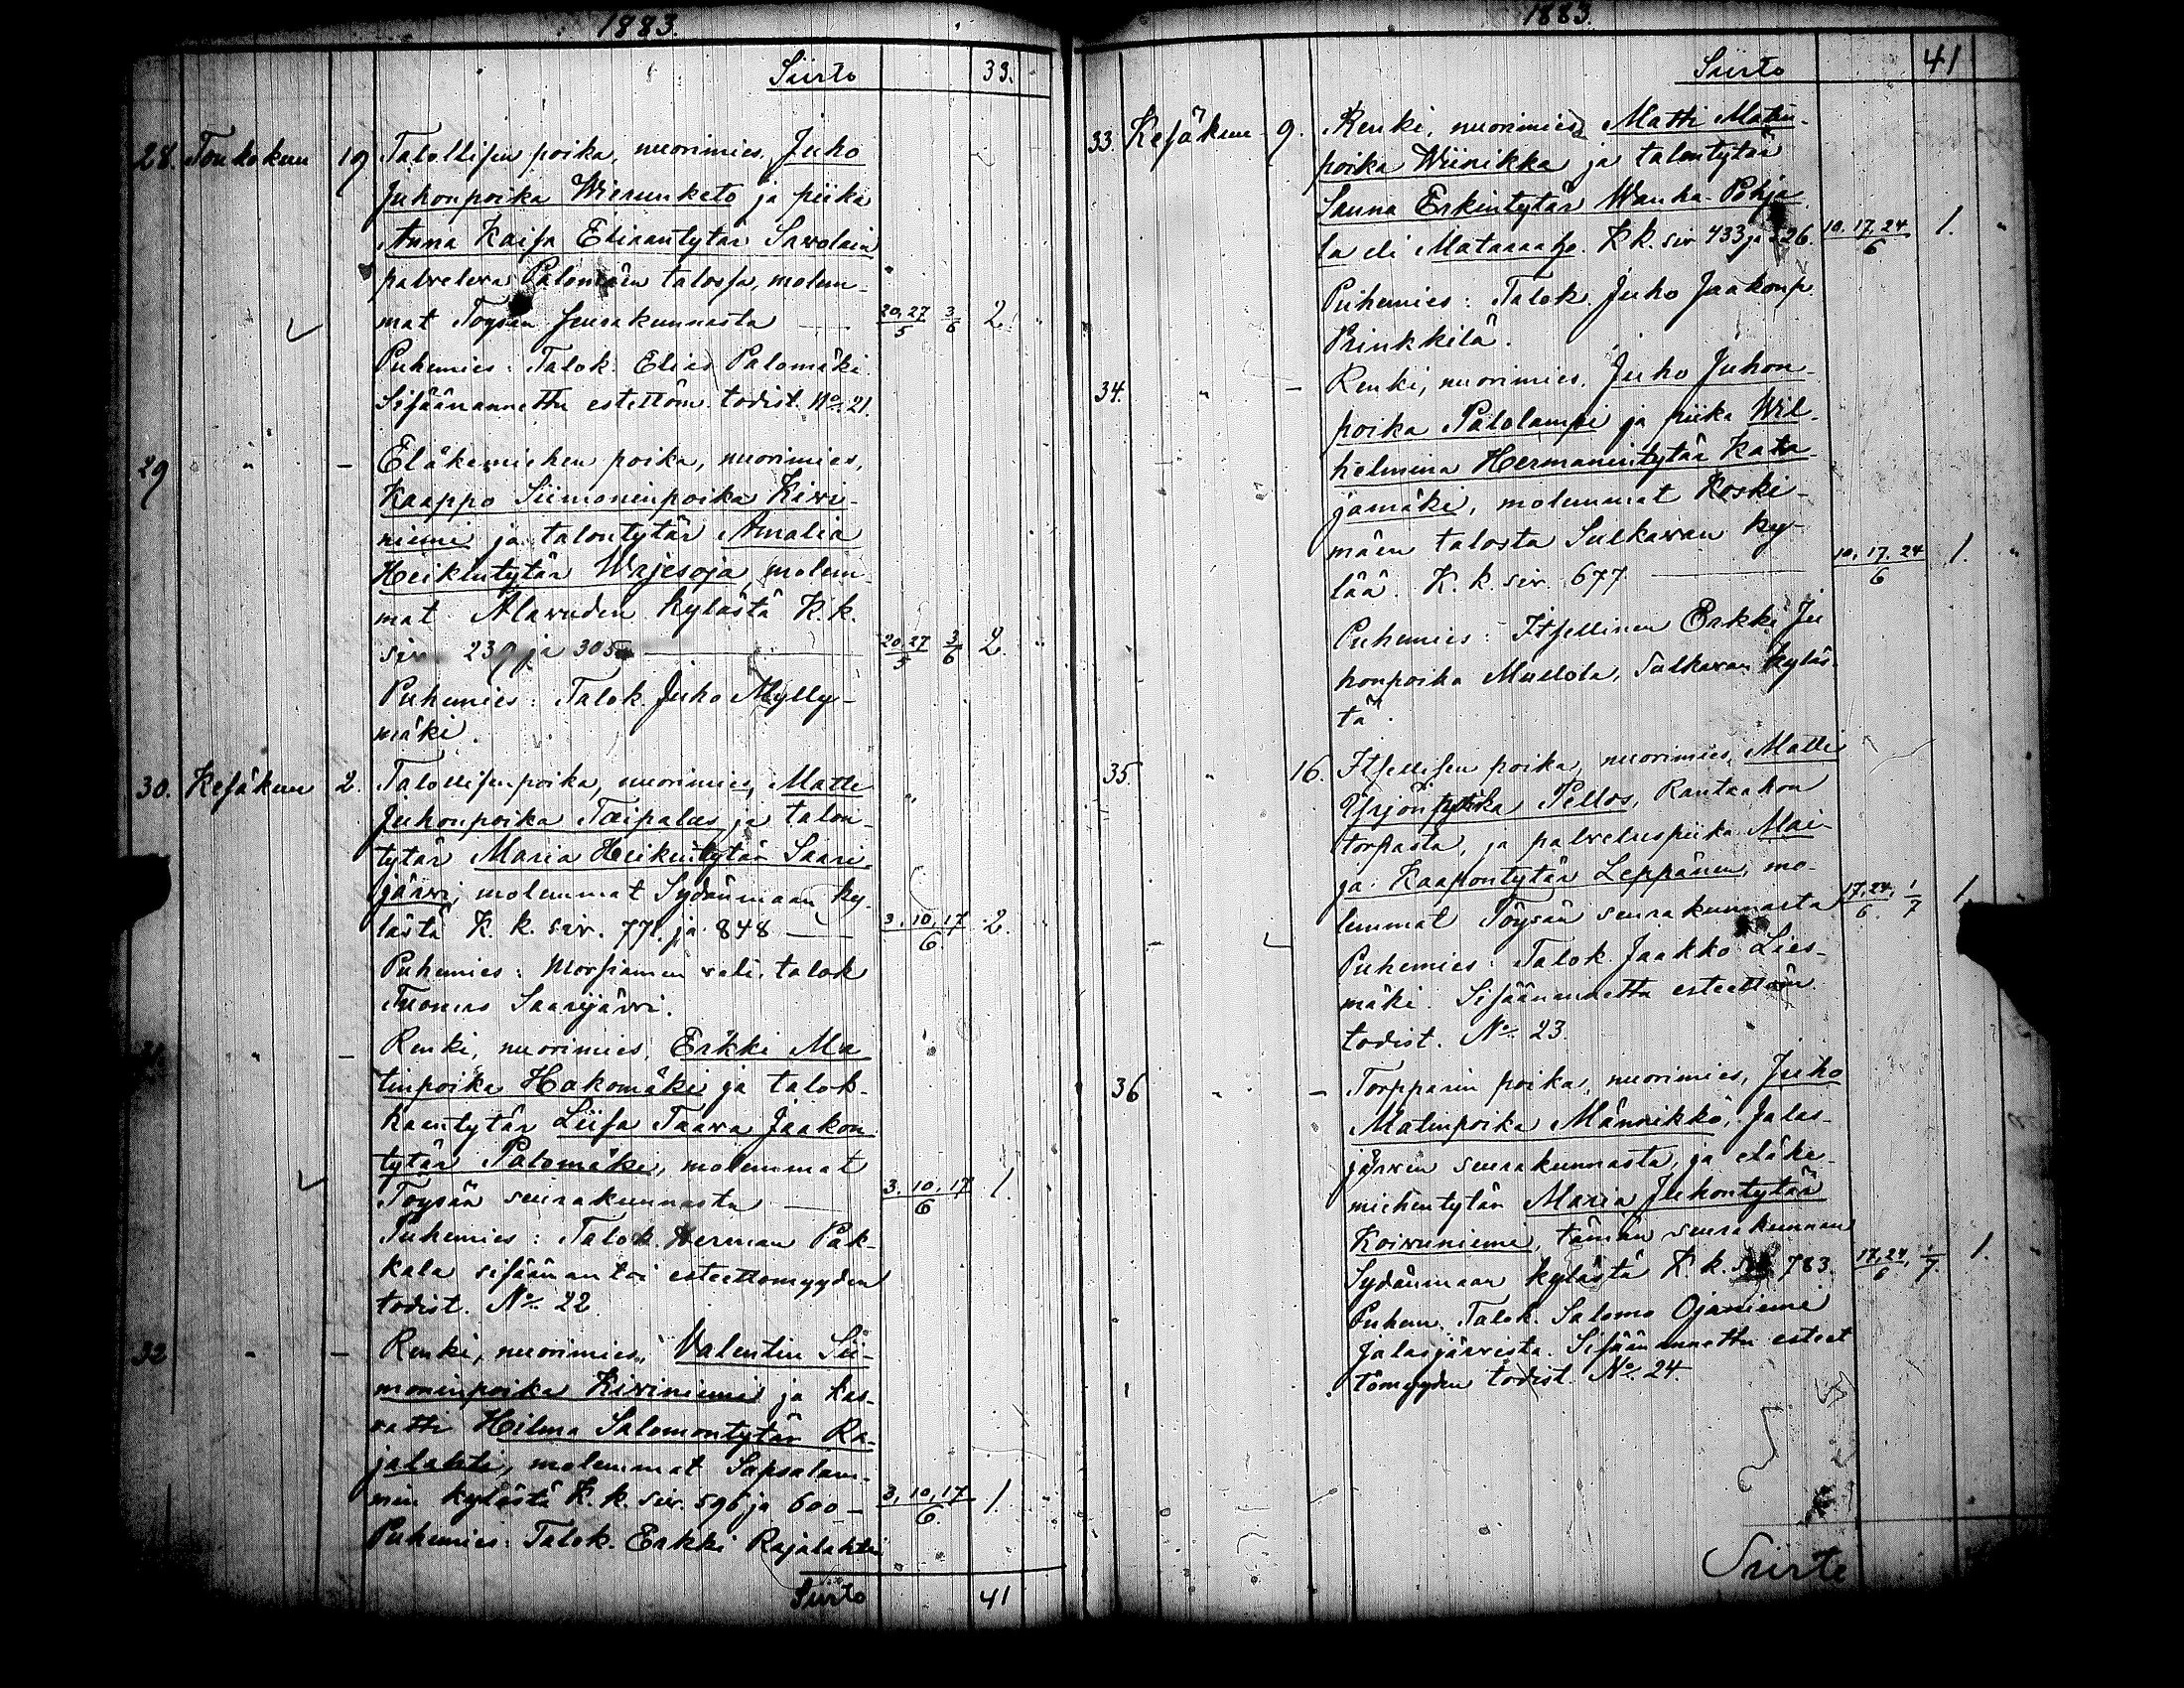 1883.
Siirto 33.
28. Toukokuu 19 Talollisen poika, nuorimies, Juho
Juhonpoika Wierunketo ja piika
Anna Kaisa Eliaantytär Sawolain
palveleva Palomäen talossa, molem-
mat Töysän seurakunnasta 20,27/5 3/6 2.
Puhemies: Talok. Elias Palomäki.
Sisäänannettu estettöm. todist. No. 21.
29 " - Eläkemiehen poika, nuorimies,
Kaappo Siimoninpoika Kiwi-
niemi ja talontytär Amalia
Heikintytär Wrjesoja, molem-
mat Alavuden kylästä K. k.
siv. 239 ja 305 20,27/5 3/6 2.
Puhemies: Talok. Juho Mylly-
mäki.
30. Kesäkuu 2. Talollisenpoika, nuorimies, Matti
Juhonpoika Taipalus ja talon-
tytär Maria Heikintytär Saari-
järwi, molemmat Sydänmaan ky-
lästä K. k. siv. 771. ja 848 3,10,17/6 2.
Puhemies: Morsiamen veli, talok
Tuomas Saarijärvi.
31 " - Renki, nuorimies, Erkki Ma
tinpoika Hakomäki ja talok-
kaantytär Liisa Taava Jaakon
tytär Palomäki, molemmat
Töysän seurakunnasta 3,10,17/6 1.
Puhemies: Talok. Herman Pak-
kala sisäänantoi esteettomyyden
todist. No. 22
32 " - Renki, nuorimies, Valentin Sii-
moninpoika Kiviniemi ja kas-
vatti Hilma Salomontytär Ra-
jalahti, molemmat Sapsalam-
min kylästä K. k. siv. 596 ja 600 - 3,10,17/6 1.
Puhemies: Talok. Erkki Rajalahti
Siirto 41
1883.
Siirto 41
33. Kesäkuu 9. Renki, nuorimies, Matti Matin-
poika Wiinikka ja talontytär
Sanna Erkintytär Wanha-Pohja
la eli Mataaaho. K k. siv 433 ja 226. 10,17,24/6 1.
Puhemies: Talok. Juho Jaakonp.
Prinkkilä.
34. " - Renki, nuorimies, Juho Juhon-
poika Palolampi ja piika Wil-
helmina Hermanintytär Kata
jamäki, molemmat Koski-
mäen talosta Sulkawan ky-
lää. K. k. siv. 677 10,17,24/6 1.
Puhemies: Itsellinen Erkki Ju
honpoika Mullola, Sulkavan kyläs-
tä.
35. " 16. Itsellisen poika, nuorimies, Matti
Yrjönpoika Pellos, Rantaahon
torpasta, ja palveluspiika Mai-
ja Kaapontytär Leppänen, mo-
lemmat Töysän seurakunnasta 17,24/6 1/7 1.
Puhemies: Talok. Jaakko Lies-
mäki. Sisäänannettu esteettöm
todist. No. 23.
36 " - Torpparin poika, nuorimies, Juho
Matinpoika Männikkö, Jalas-
järven seurakunnasta, ja eläke-
miehentytär Maria Juhontytär
Koivuniemi, tämän seurakunnan
Sydänmaan kylästä K. k. siv 783. 17,24/6 1/7 1.
Puhem. Talok. Salomo Ojaniemi
Jalasjärvestä. Sisäänannettu esteet
tömyyden todist. No. 24.
Siirto